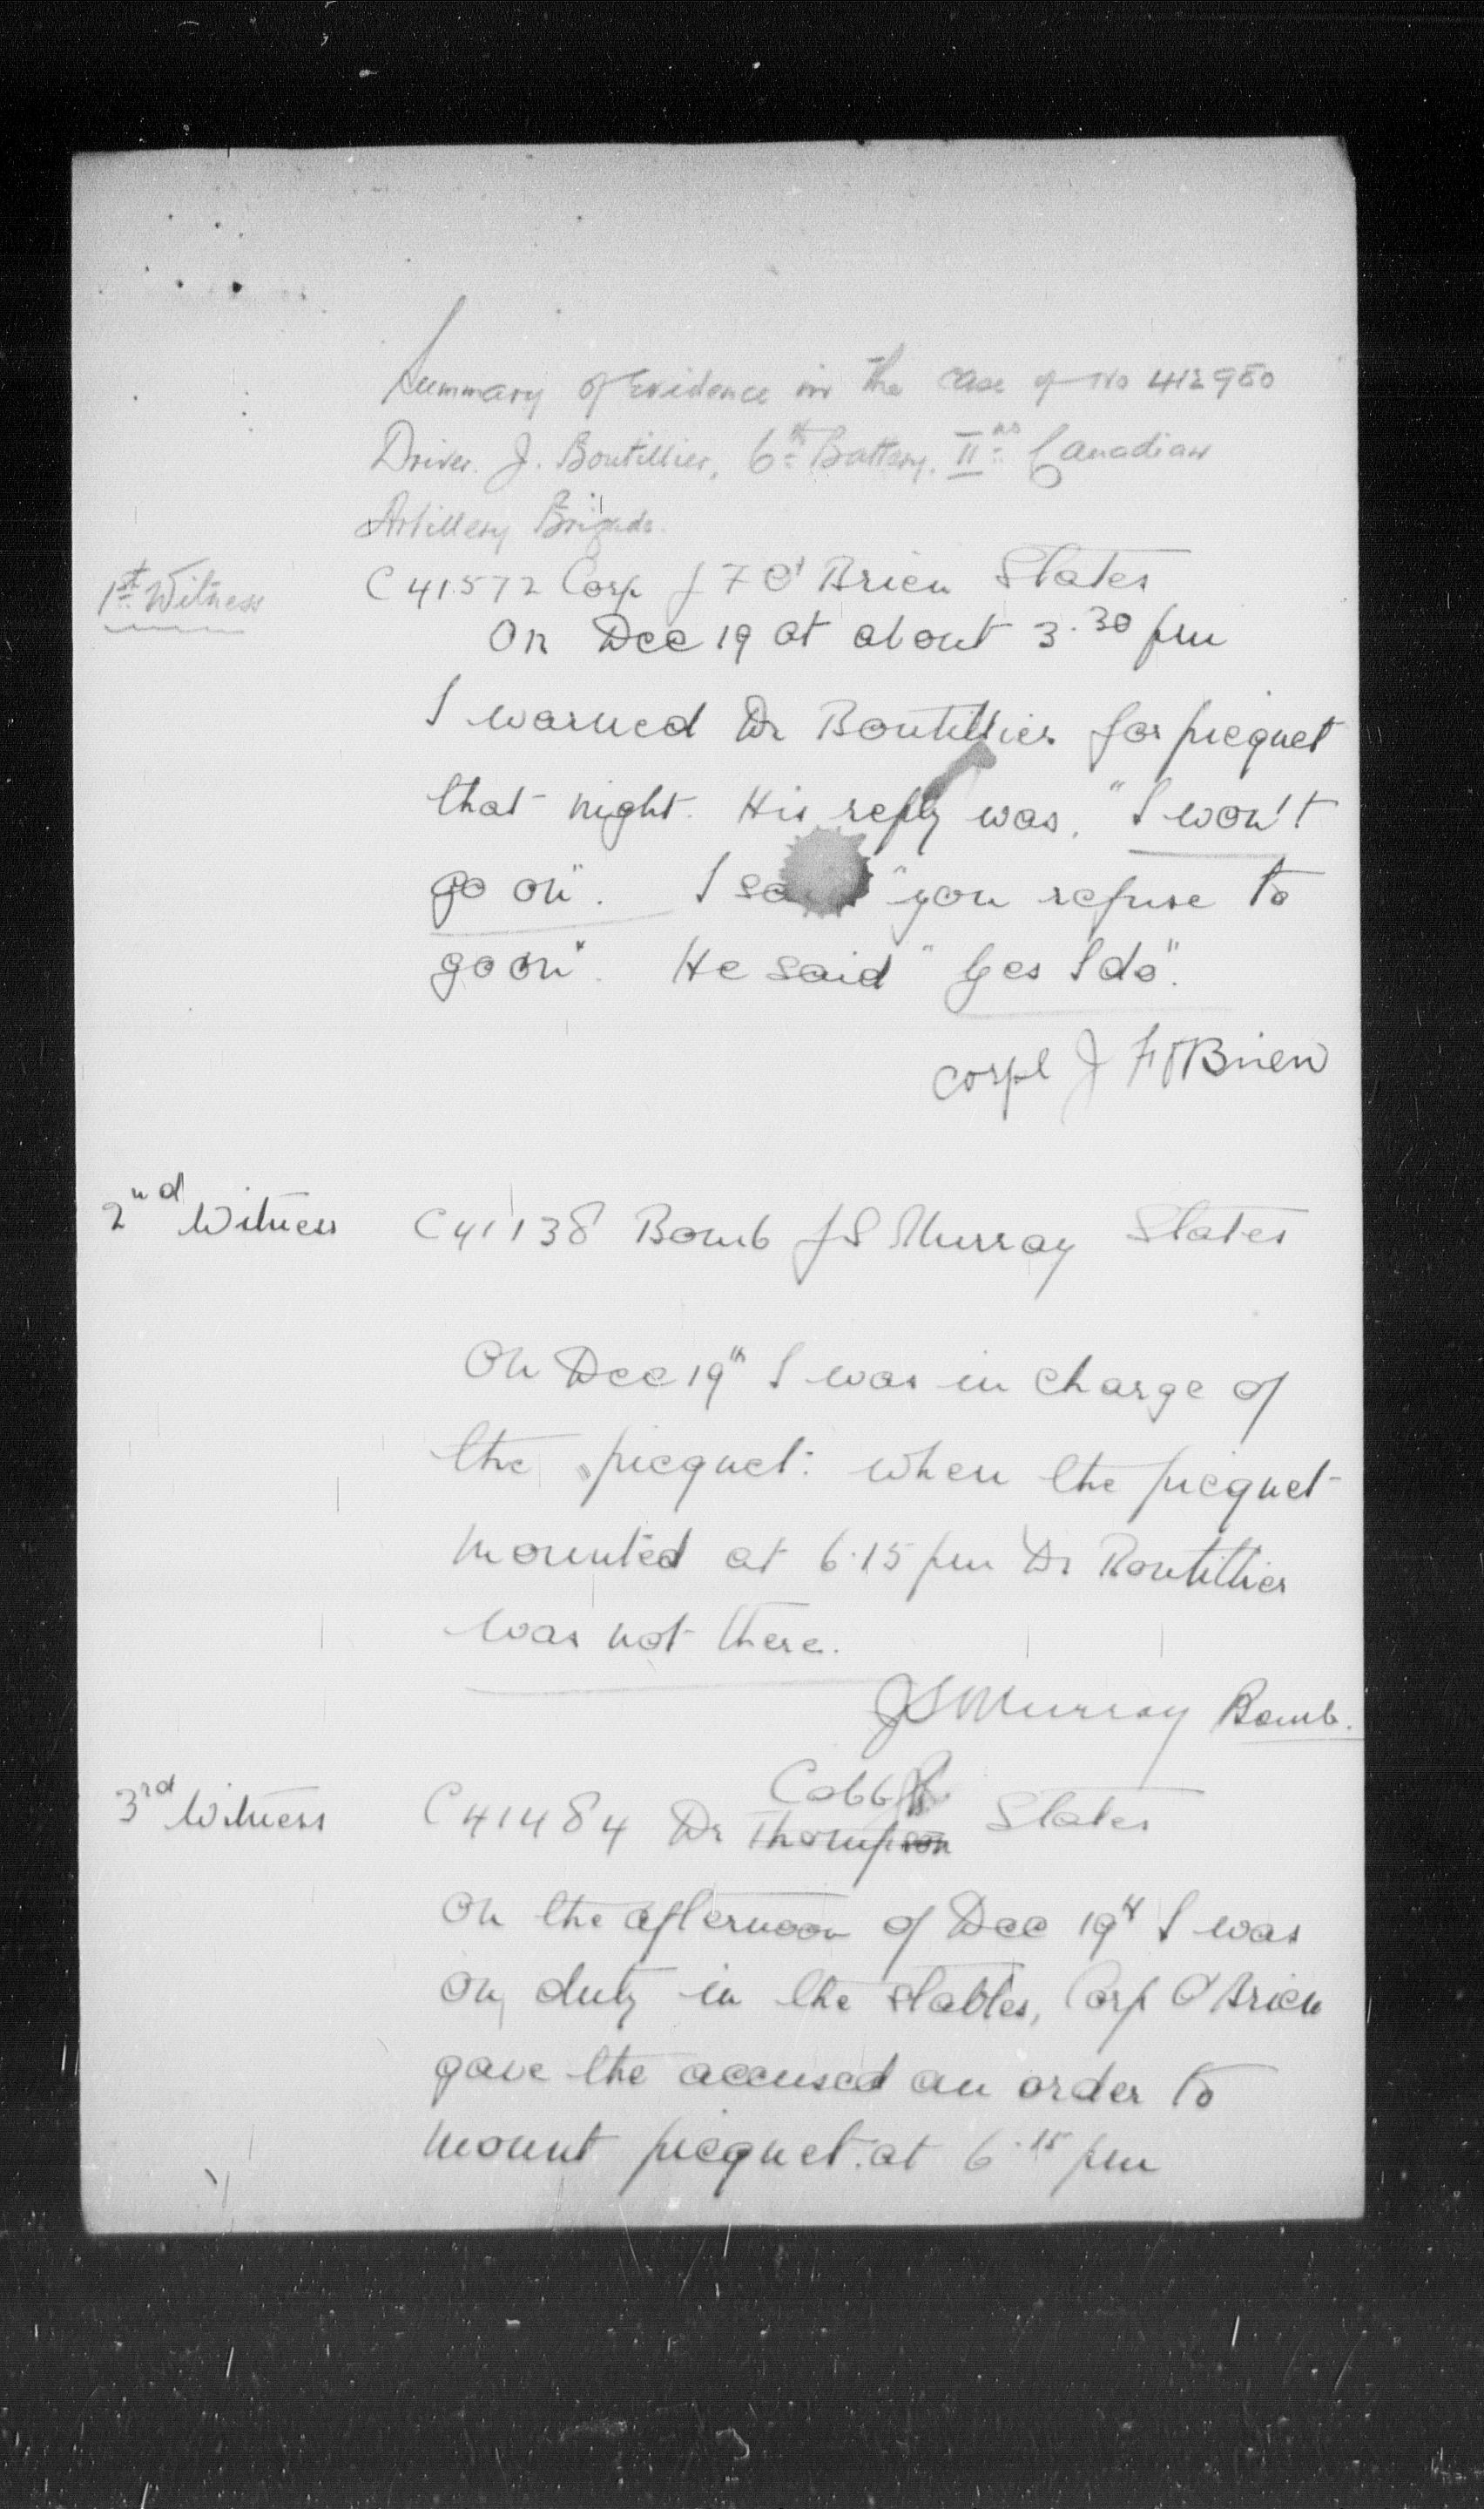 Summary of Evidence in the case of No 412980
Driver. J. Boutillier, 6th Battery, IInd Canadian
Artillery Brigade.
1st Witness
C 41572 Corp J F O'Brien States
On Dec 19 at about 3.30 pm
I warned Dr Boutillier for picquet
that night. His reply was, "I won't
go on". I "you refuse to
go on". He said "Yes I do".
Corpl J F O'Brien
2nd Witness C41138 Bomb J S Murray States
On Dec 19th I was in charge of
the picquet. when the picquet
mounted at 6.15 pm Dr Boutillier
was not there.
J S Murray Bomb.
Cobb
3rd Witness C 41484 Dr Thompson States
On the afternoon of Dec 19th I was
on duty in the stables, Corp O'Brien
gave the accused an order to
mount picquet at 6.15 pm